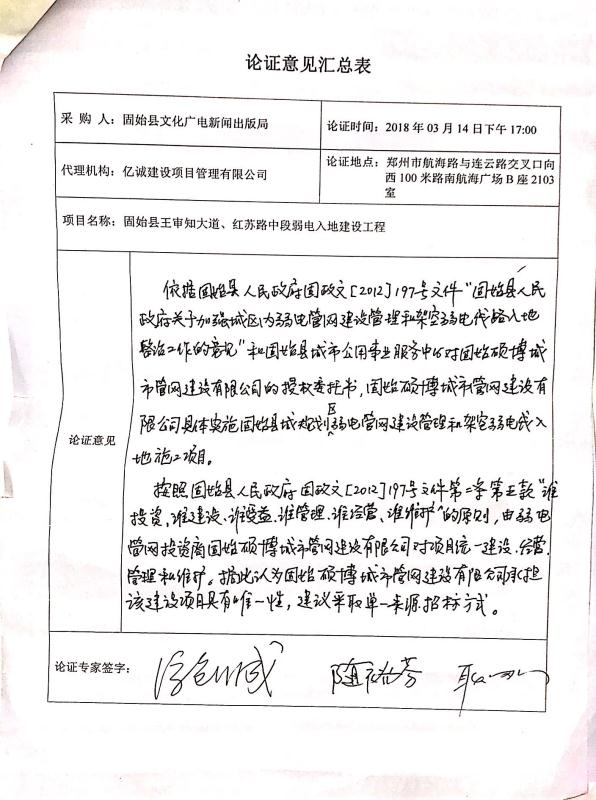 论证意见汇总表
采 购 人：固始县文化广电新闻出版局
论证时间：2018 年 03 月 14 日下午 17:00
代理机构：亿诚建设项目管理有限公司
论证地点：郑州市航海路与连云路交叉口向
西 100 米路南航海广场 B 座 2103
室
项目名称：固始县王审知大道、红苏路中段弱电入地建设工程
论证意见
依据固始县人民政府固政文[2012]197号文件“固始县人民
政府关于加强城区内弱电管网建设管理和架空弱电线路入地
整治工作的意见”和固始县城市公用事业服务中心对固始硕博城
市管网建设有限公司的授权委托书，固始硕博城市管网建设有
限公司具体实施固始县城规划区弱电管网建设管理和架空弱电线入
地施工项目。
按照固始县人民政府固政文[2012]197号文件第二条第五款“谁
投资、谁建设、谁受益、谁管理、谁经营、谁维护”的原则，由弱电
管网投资商固始硕博城市管网建设有限公司对项目统一建设、经营、
管理和维护。据此认为固始硕博城市管网建设有限公司承担
该建设项目具有唯一性，建议采取单一来源招标方式。
论证专家签字：